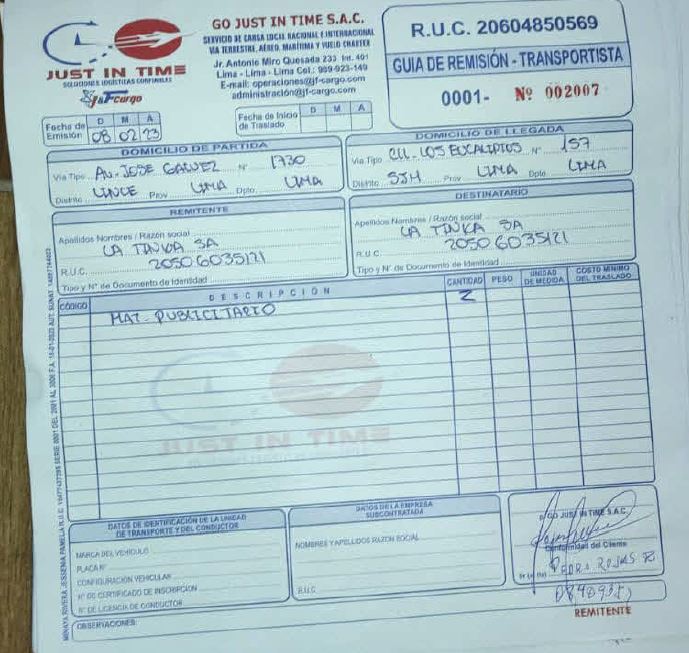 JUST IN TIME
SOLUCIONES LOGÍSTICAS CONFIABLES
J&F cargo
GO JUST IN TIME S.A.C.
SERVICIO DE CARGA LOCAL NACIONAL E INTERNACIONAL
VIA TERRESTRE, AÉREO, MARÍTIMA Y VUELO CHARTER
Jr. Antonio Miro Quesada 233 Int. 401
Lima - Lima - Lima Cel.: 989-923-149
E-mail: operaciones@jf-cargo.com
administración@jf-cargo.com
R.U.C. 20604850569
GUIA DE REMISIÓN - TRANSPORTISTA
0001- Nº 002007
Fecha de Emisión D M A
08 02 23
Fecha de Inicio de Traslado D M A
DOMICILIO DE PARTIDA
Via Tipo AV. JOSE GALVEZ Nº 1730
Distrito LINCE Prov LIMA Dpto. LIMA
DOMICILIO DE LLEGADA
Via Tipo LOS EUCALIPTOS Nº 157
Distrito SJM Prov LIMA Dpto. LIMA
REMITENTE
Apellidos Nombres / Razón social
LA TINKA SA
R.U.C. 20506035121
Tipo y Nº de Documento de Identidad
DESTINATARIO
Apellidos Nombres / Razón social
LA TINKA SA
R.U.C. 20506035121
Tipo y Nº de Documento de Identidad
CÓDIGO DESCRIPCIÓN CANTIDAD PESO UNIDAD DE MEDIDA COSTO MINIMO DEL TRASLADO
MAT. PUBLICITARIO 2
JUST IN TIME
DATOS DE IDENTIFICACIÓN DE LA UNIDAD
DE TRANSPORTE Y DEL CONDUCTOR
MARCA DEL VEHICULO
PLACA Nº
CONFIGURACIÓN VEHICULAR
Nº DE CERTIFICADO DE INSCRIPCION
Nº DE LICENCIA DE CONDUCTOR
DATOS DE LA EMPRESA
SUBCONTRATADA
NOMBRES Y APELLIDOS RAZON SOCIAL
R.U.C.
GO JUST IN TIME S.A.C.
Conformidad del Cliente
PEDRO ROJAS
REMITENTE
OBSERVACIONES: